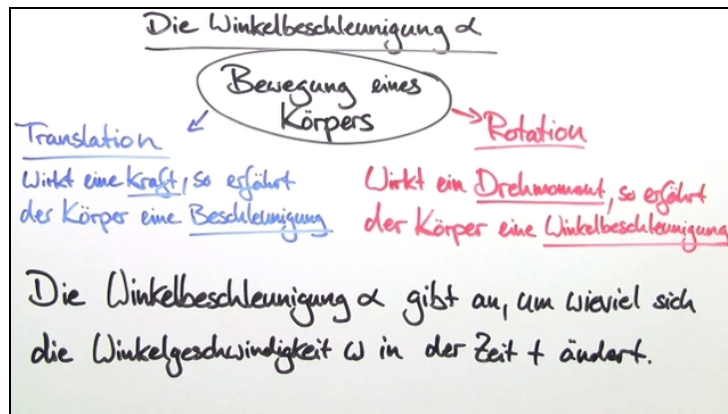 Die Winkelbeschleunigung α
Bewegung eines
Körpers
Translation
Wirkt eine Kraft, so erfährt
der Körper eine Beschleunigung
Rotation
Wirkt ein Drehmoment, so erfährt
der Körper eine Winkelbeschleunigung
Die Winkelbeschleunigung α gibt an, um wieviel sich
die Winkelgeschwindigkeit ω in der Zeit t ändert.